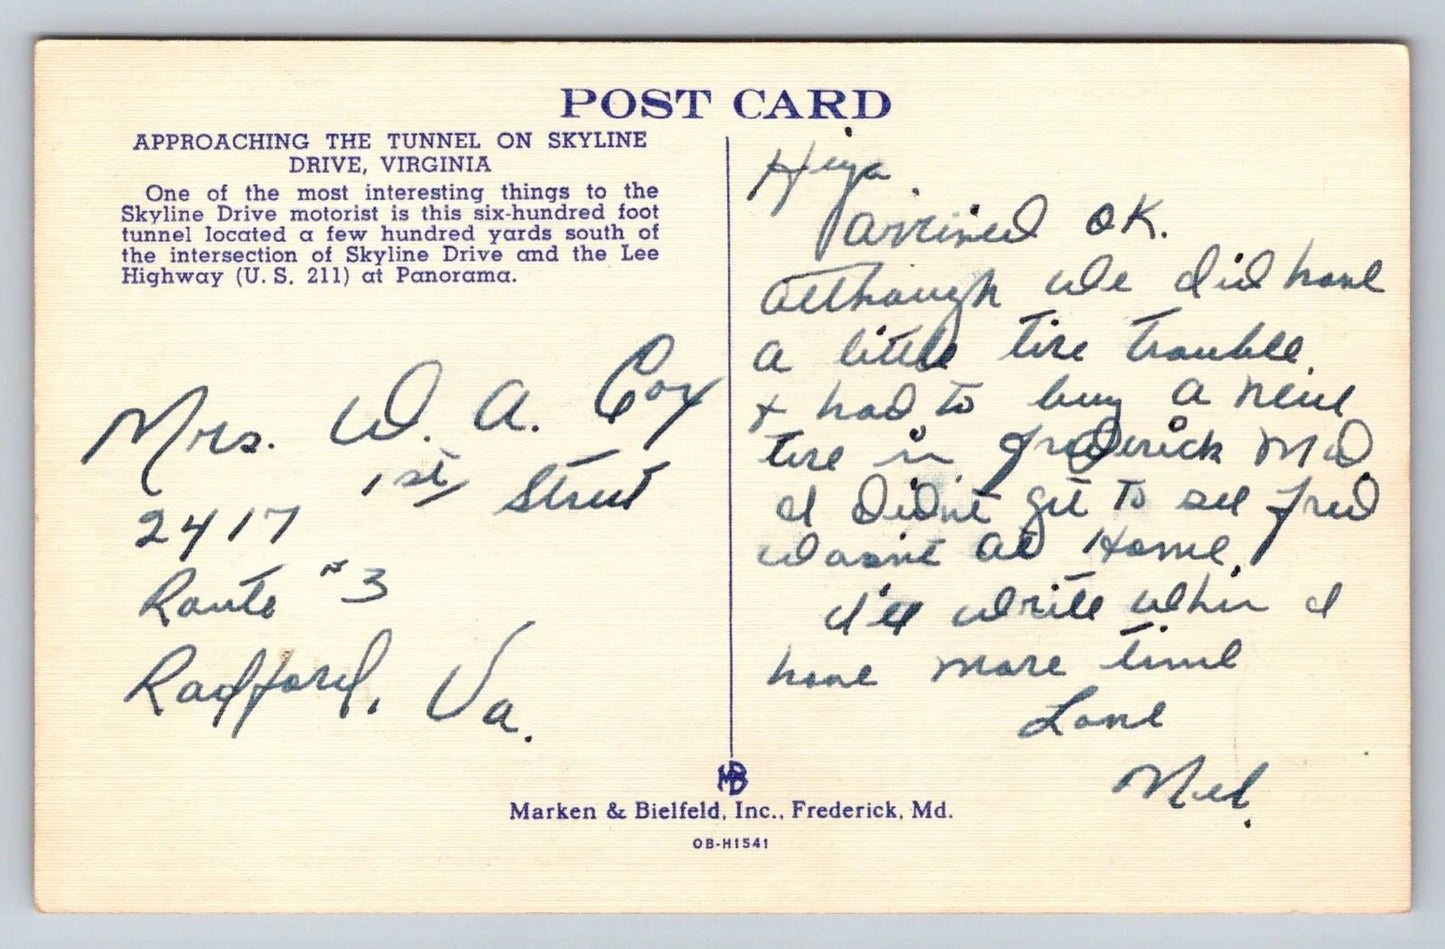 POST CARD
APPROACHING THE TUNNEL ON SKYLINE
DRIVE, VIRGINIA
One of the most interesting things to the
Skyline Drive motorist is this six-hundred foot
tunnel located a few hundred yards south of
the intersection of Skyline Drive and the Lee
Highway (U. S. 211) at Panorama.
Mrs. W. A. Cox
2417 1st Street
Route #3
Radford, Va.
Hiya
Arrived OK.
Although we did have
a little tire trouble
+ had to buy a new
tire in Frederick Md
I didn't get to see Fred
wasn't at Home.
I'll write when I
have more time
Love
Ned.
MB
Marken & Bielfeld, Inc., Frederick, Md.
OB-H1541